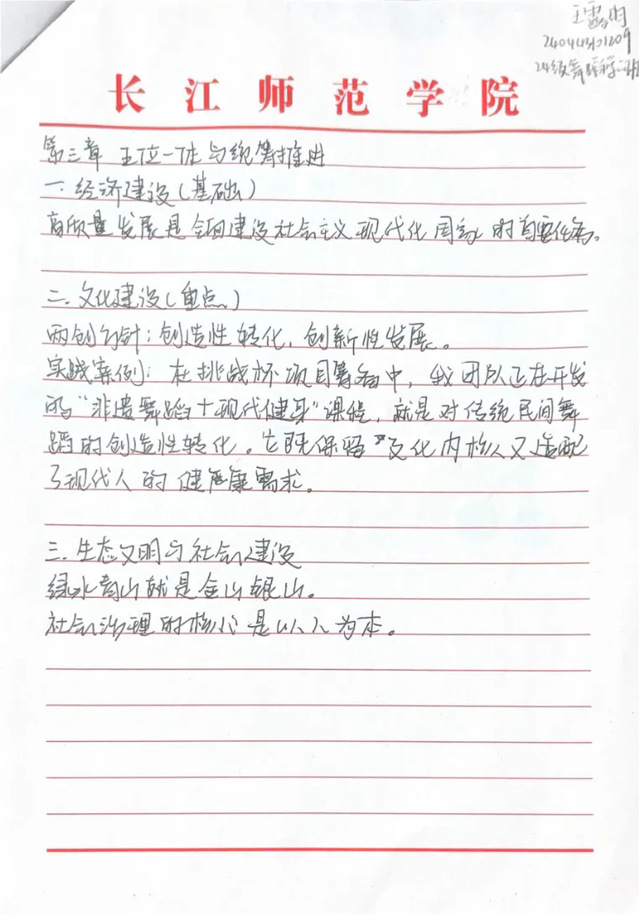 王露明
24级舞蹈学二班
长江师范学院
第三章 五位一体与统筹推进
一. 经济建设(基础)
高质量发展是全面建设社会主义现代化国家的首要任务。
二. 文化建设(重点)
两创方针:创造性转化,创新性发展。
实践案例:在挑战杯项目筹备中,我团队正在开发
的"非遗舞蹈+现代健身"课程,就是对传统民间舞
蹈的创造性转化。它既保留文化内核又适配
了现代人的健康需求。
三. 生态文明与社会建设
绿水青山就是金山银山。
社会治理的核心是以人为本。